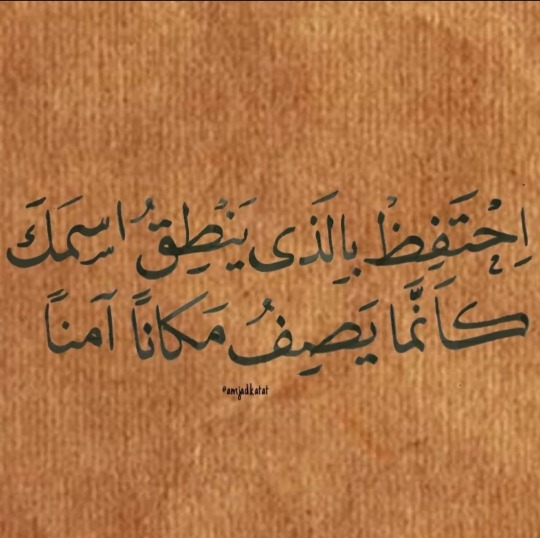 اِحْتَفِظْ بِالَذى يَنْطِقُ اسِمَكَ
كَاَنَّما يَصِفُ مَكاناً آمناً
#amjadkatat